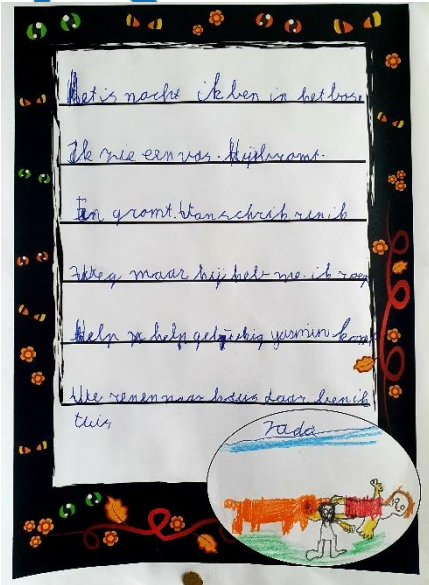 Het is nacht ik ben in het bos
Ik zie een vos. Hij bromt.
En gromt. Van schrik ren ik
Weg maar hij heb me. ik roep
Help help gelukkig yasmin komt
We renen naar haus daar ben ik
tuis
rada